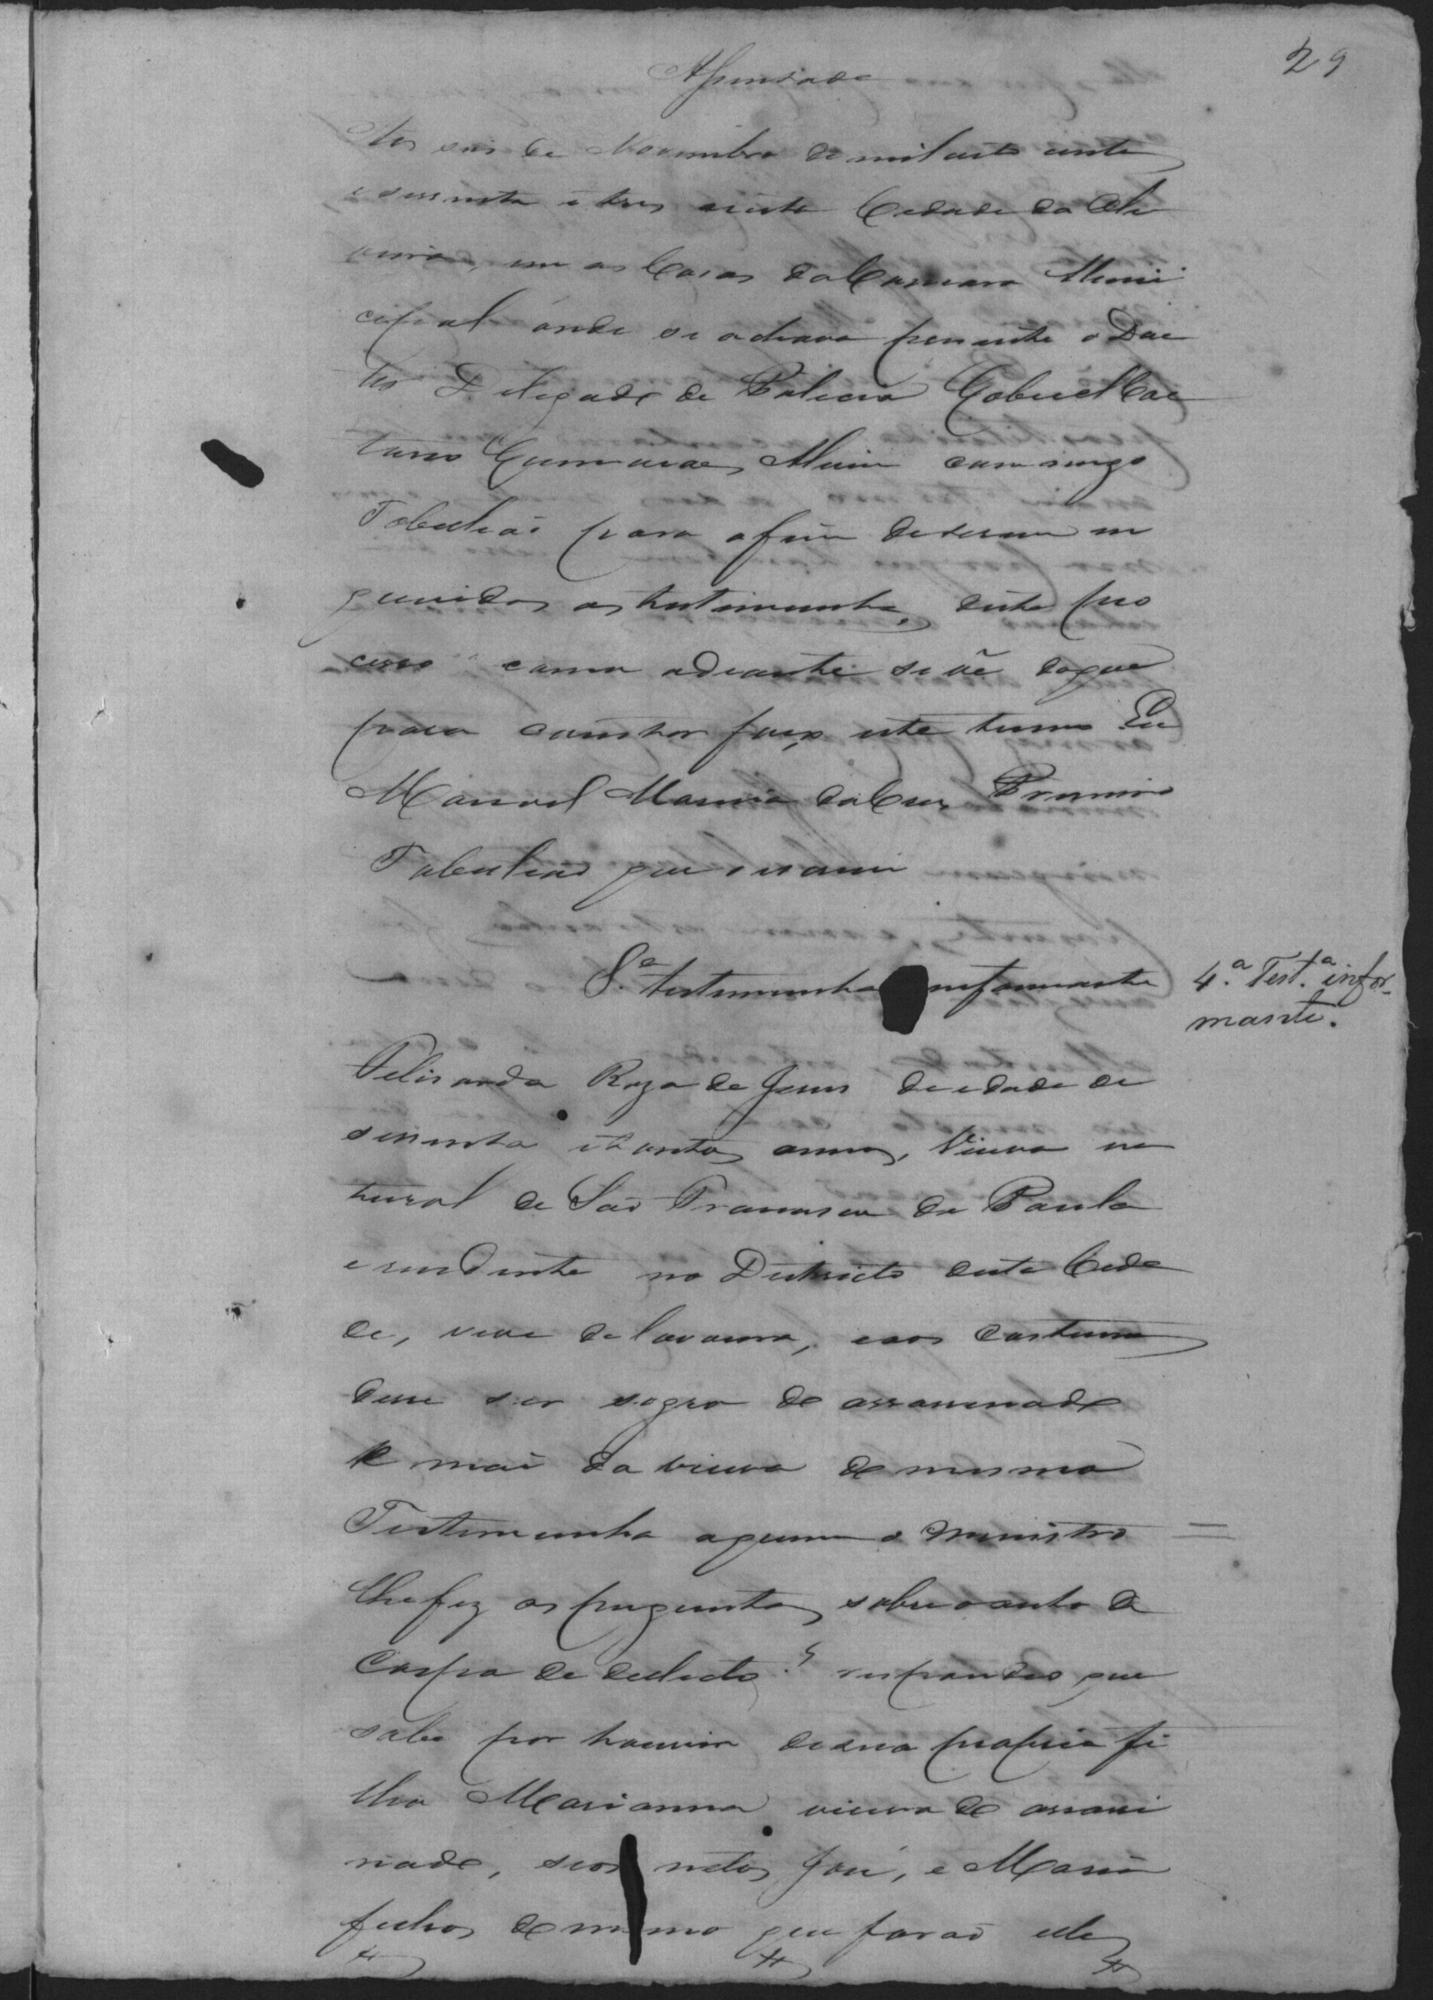 29
Assentada
Aos seis de Novembro de mil oito centos
e sessenta e tres nesta Cidade da Oli
veira, em as Casas da Camara Muni
cipal onde se achava prezente o Dou
tor Delegado de Policia Gabriel Cae
tano Guimaraes, Alvim comigo
Tabeliaõ para afim de serem in
queridos as testimunhas deste pro
cesso como adiante se vê do que
para constar faço este termo Eu
Manoel Maria da Cruz Primeiro
Tabeliaõ que escrevi
8.ª testimunha informante
4.ª Test.ª infor-
mante.
Felisarda Roza de Jesus de edade de
secenta e tantos annos, Viuva na
tural de Saõ Francisco de Paula
e rezidente no Districto desta Cida
de, vive de lavoura, e aos costumes
disse ser sogra do assacinado
e mai da viuva do mesmo
Testimunha a quem o Ministro
lhe fez as perguntas sobre o auto de
Corpo de delicto? respondeo que
sabe por houvir de sua propria fi
lha Marianna viuva do assaci
nado, seos netos José, e Maria
filhos do mesmo que foraõ elles